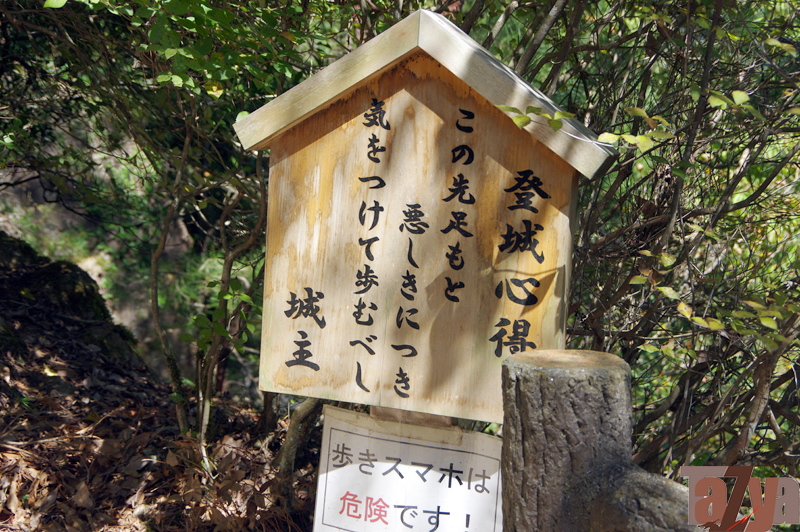 登城心得
この先足もと
悪しきにつき
気をつけて歩むべし
城主
歩きスマホは
危険です！
a7ya